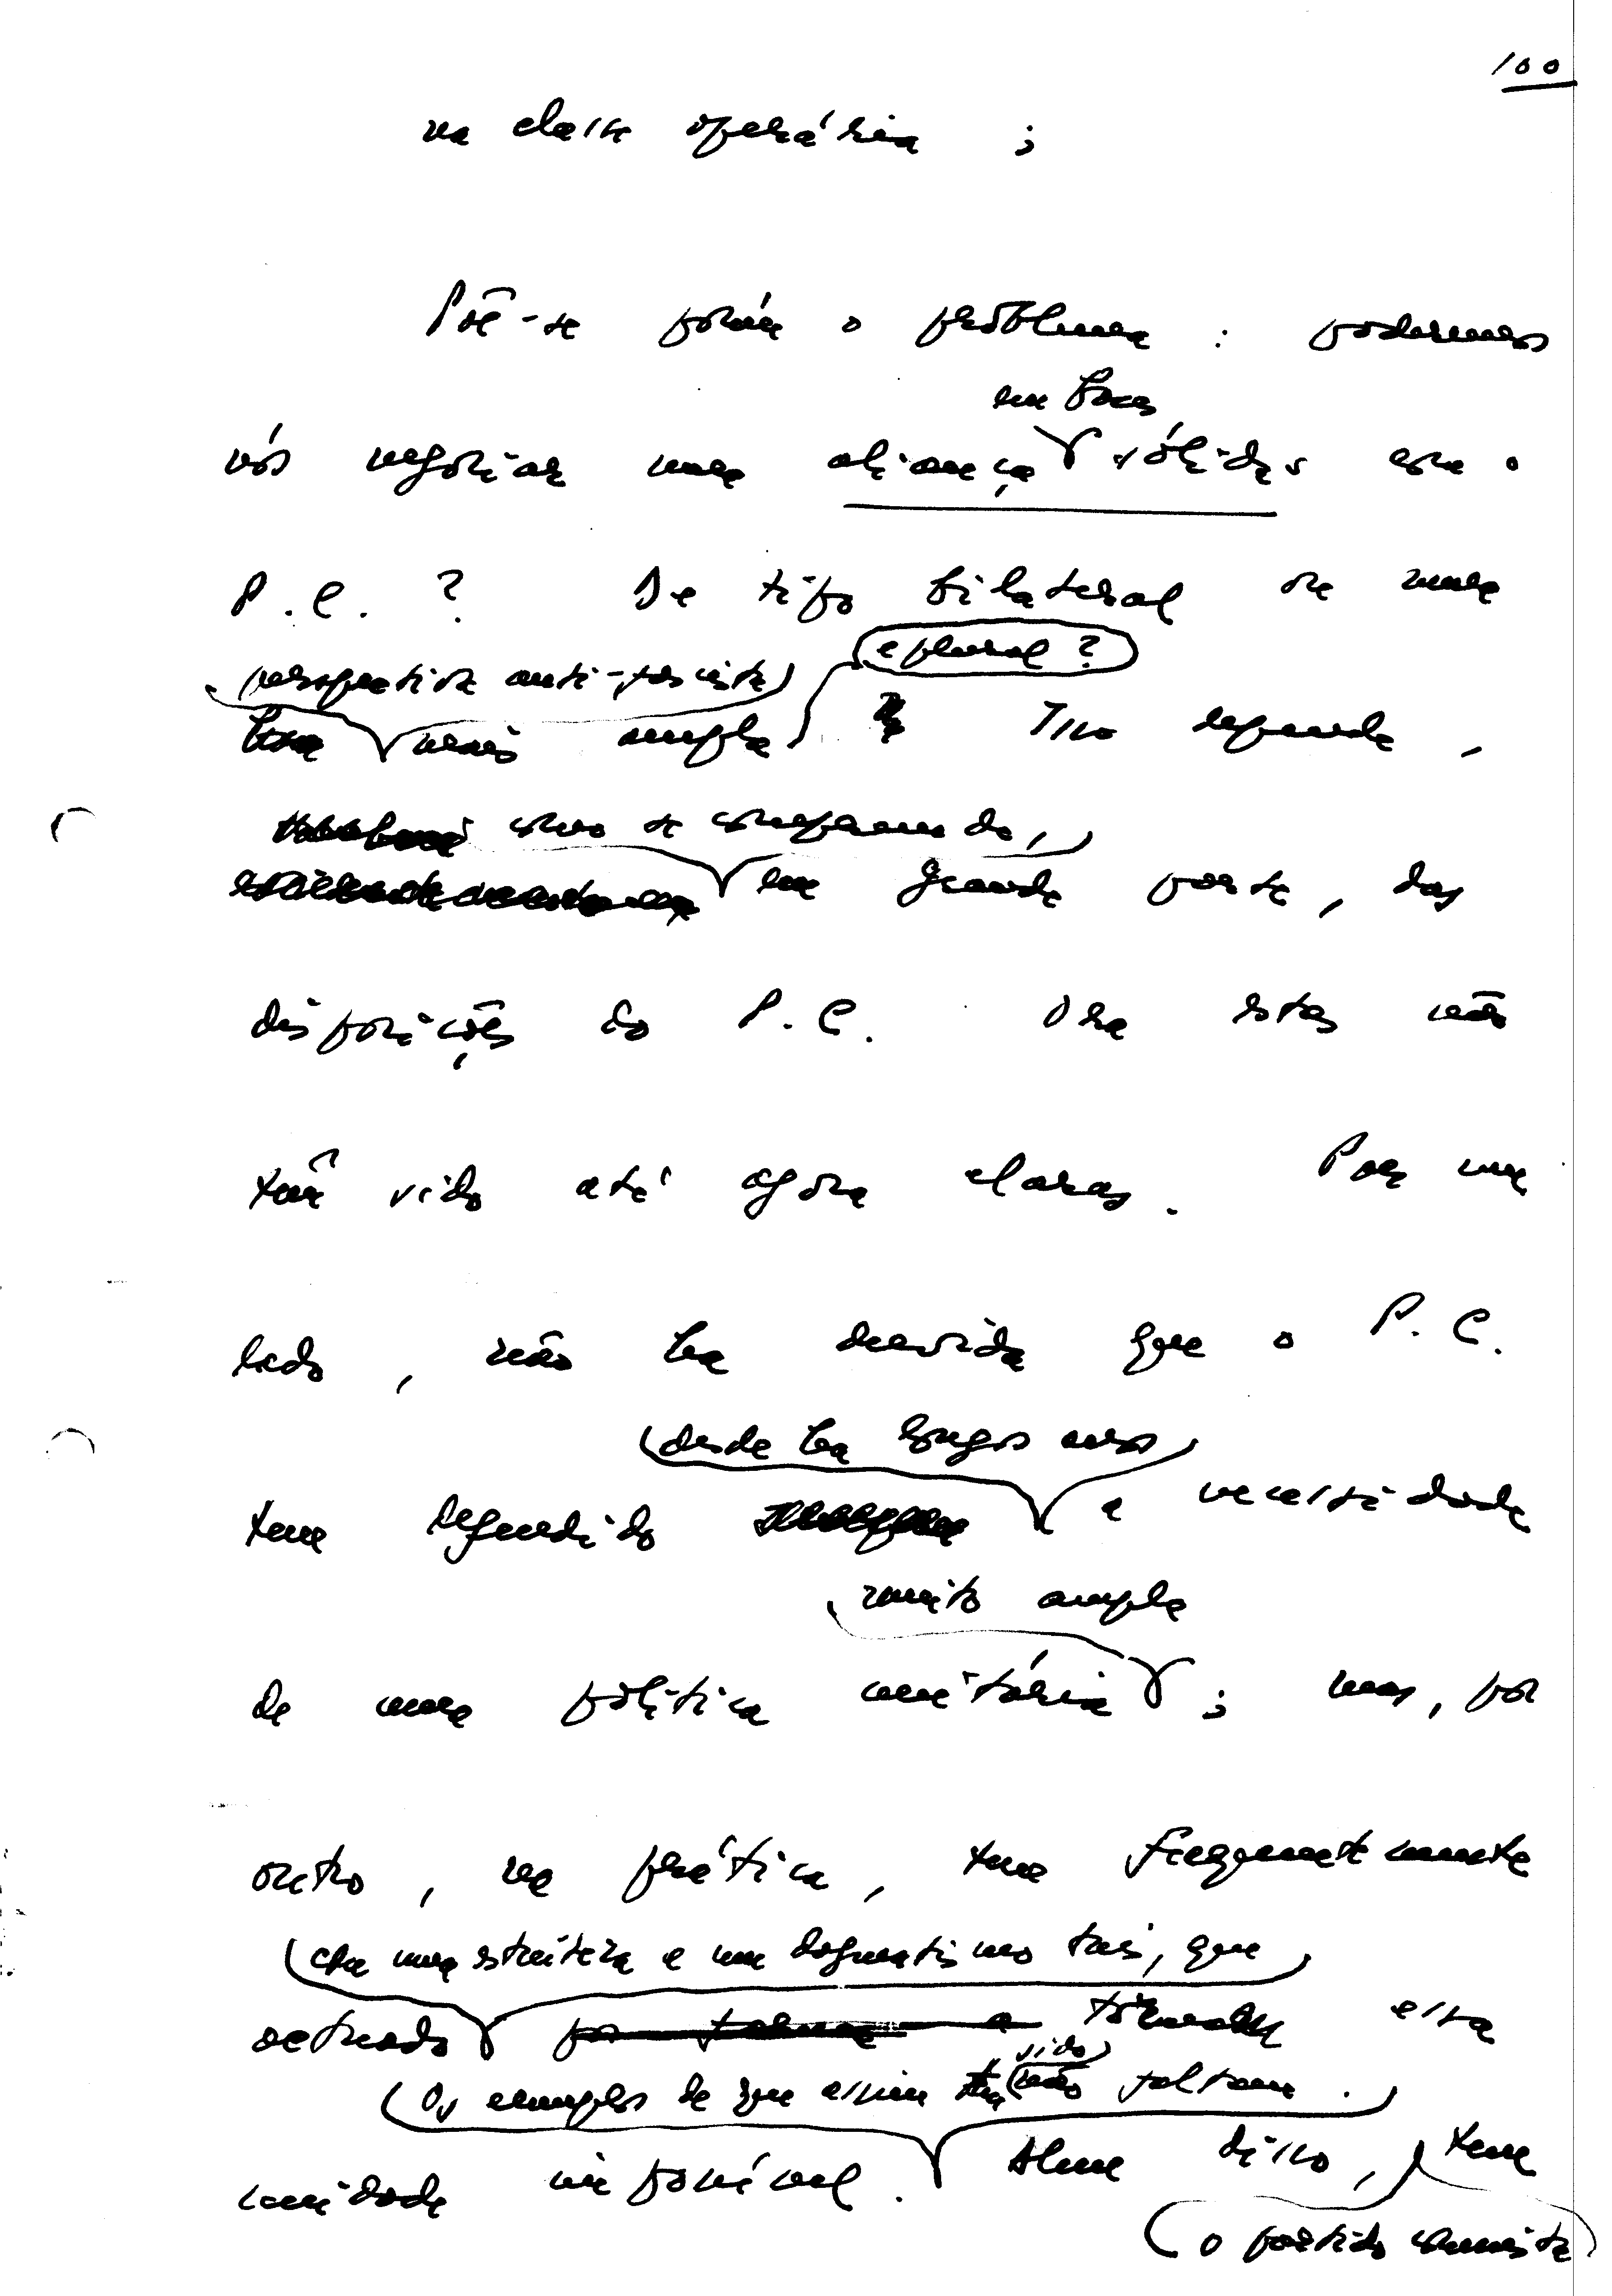 100
na classe operária ;
Põe-se porém o problema : poderemos
em bases
nós negociar uma aliança sólidas com o
P. C. ? De tipo bilateral ou numa
e plural ?
perspectiva anti-fascista
mais ampla Isso depende,
como se compreende,
em grande parte, das
disposições do P. C. Ora estas não
têm sido até agora claras. Por um
lado, não há dúvida que o P. C.
desde há longos anos
tem defendido a necessidade
muito ampla
de uma política unitária ; mas, por
outro, na prática, tem frequentemente
com uma estreiteza e um dogmatismo tais, que
actuado por tornar a tornam essa
sido
Os exemplos de que assim tem não faltam.
unidade impossível. Além disso, tem
o partido comunista